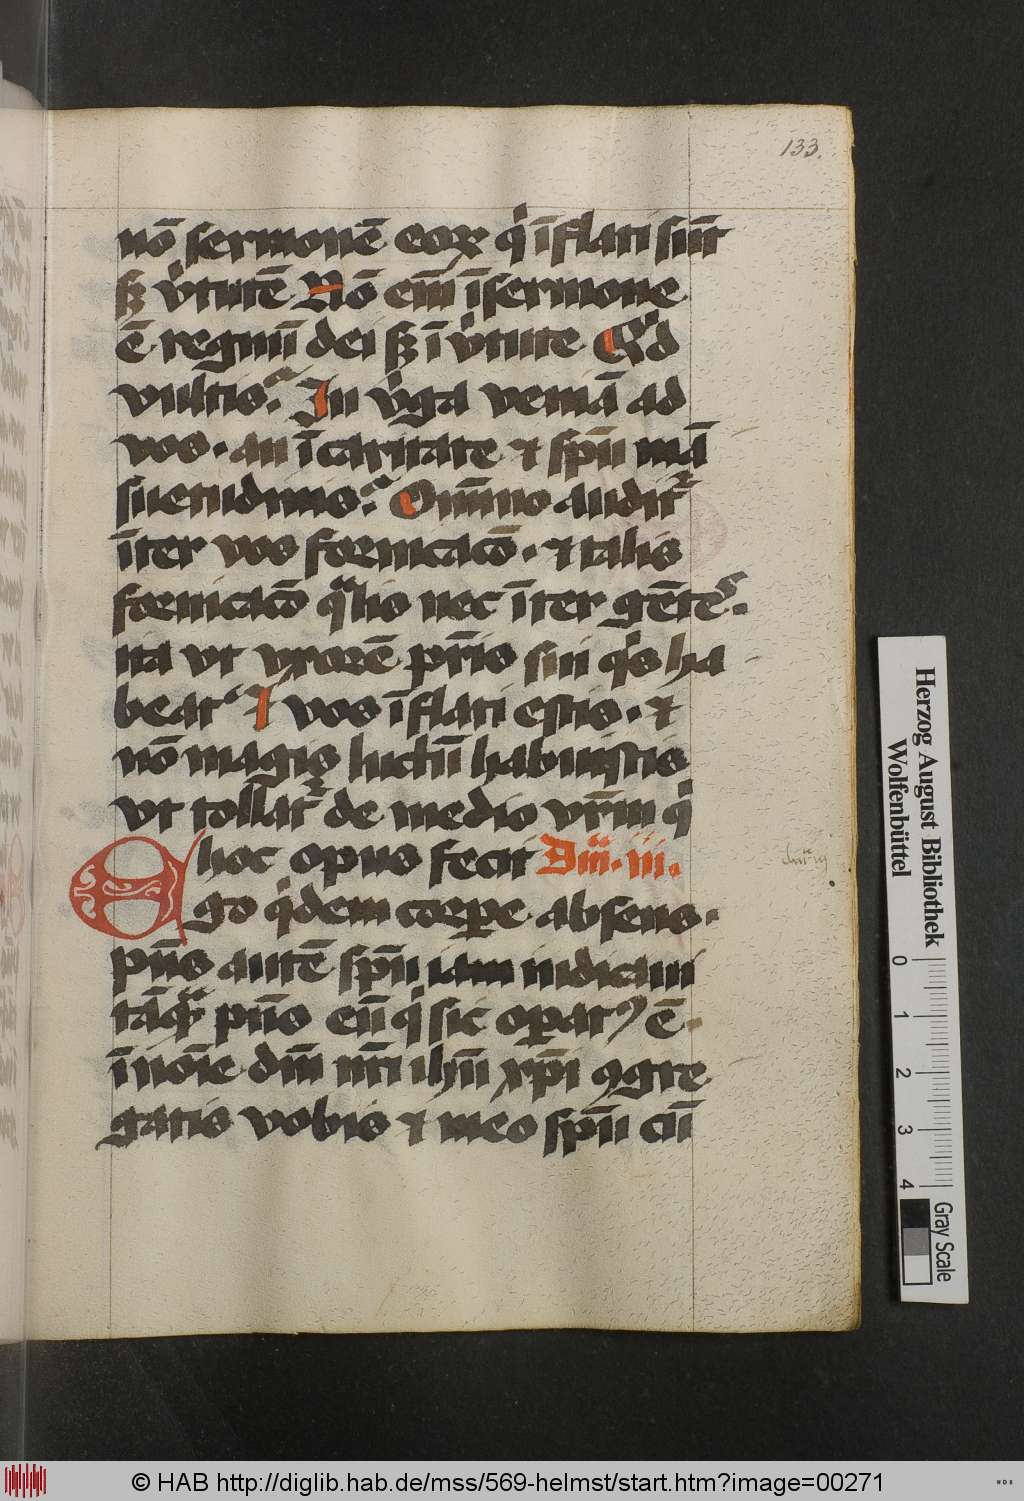 133.
nō sermonē eoꝝ qⁱ īflati sūt
sꝫ vⁱtutē Nō eīm ī sermone
ē regnū dei sꝫ ī vⁱtute Qⁱd
vultis? In vⁱga veniā ad
vos · an ī caritate ⁊ spū mā
suetudinis? Omīno auditᷣ
īter vos fornicacō · ⁊ talis
fornicacō qᵃlis nec īter gētes ·
ita vt vxorē pr̄is sui qⁱs ha
beat Et vos īflati estis · ⁊
nō magis luctū habuistis
vt tollatᷣ de medio vr̄m qⁱ
hoc opus fecit Dm̄ · iii ·
Ego qⁱdem corꝑe absens ·
pn̄s autē spū iam iudicaui
tāqᵃꝫ pn̄s eū qⁱ sic oꝑatꝰ ē ·
ī noīe dn̄i nr̄i ihū xp̄i ꝯgre
gatis vobis ⁊ meo spū cū
Herzog August Bibliothek
Wolfenbüttel
0 1 2 3 4
Gray Scale
© HAB http://diglib.hab.de/mss/569-helmst/start.htm?image=00271